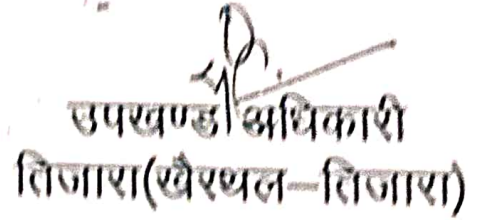 उपखण्ड अधिकारी
तिजारा(खैरथल-तिजारा)